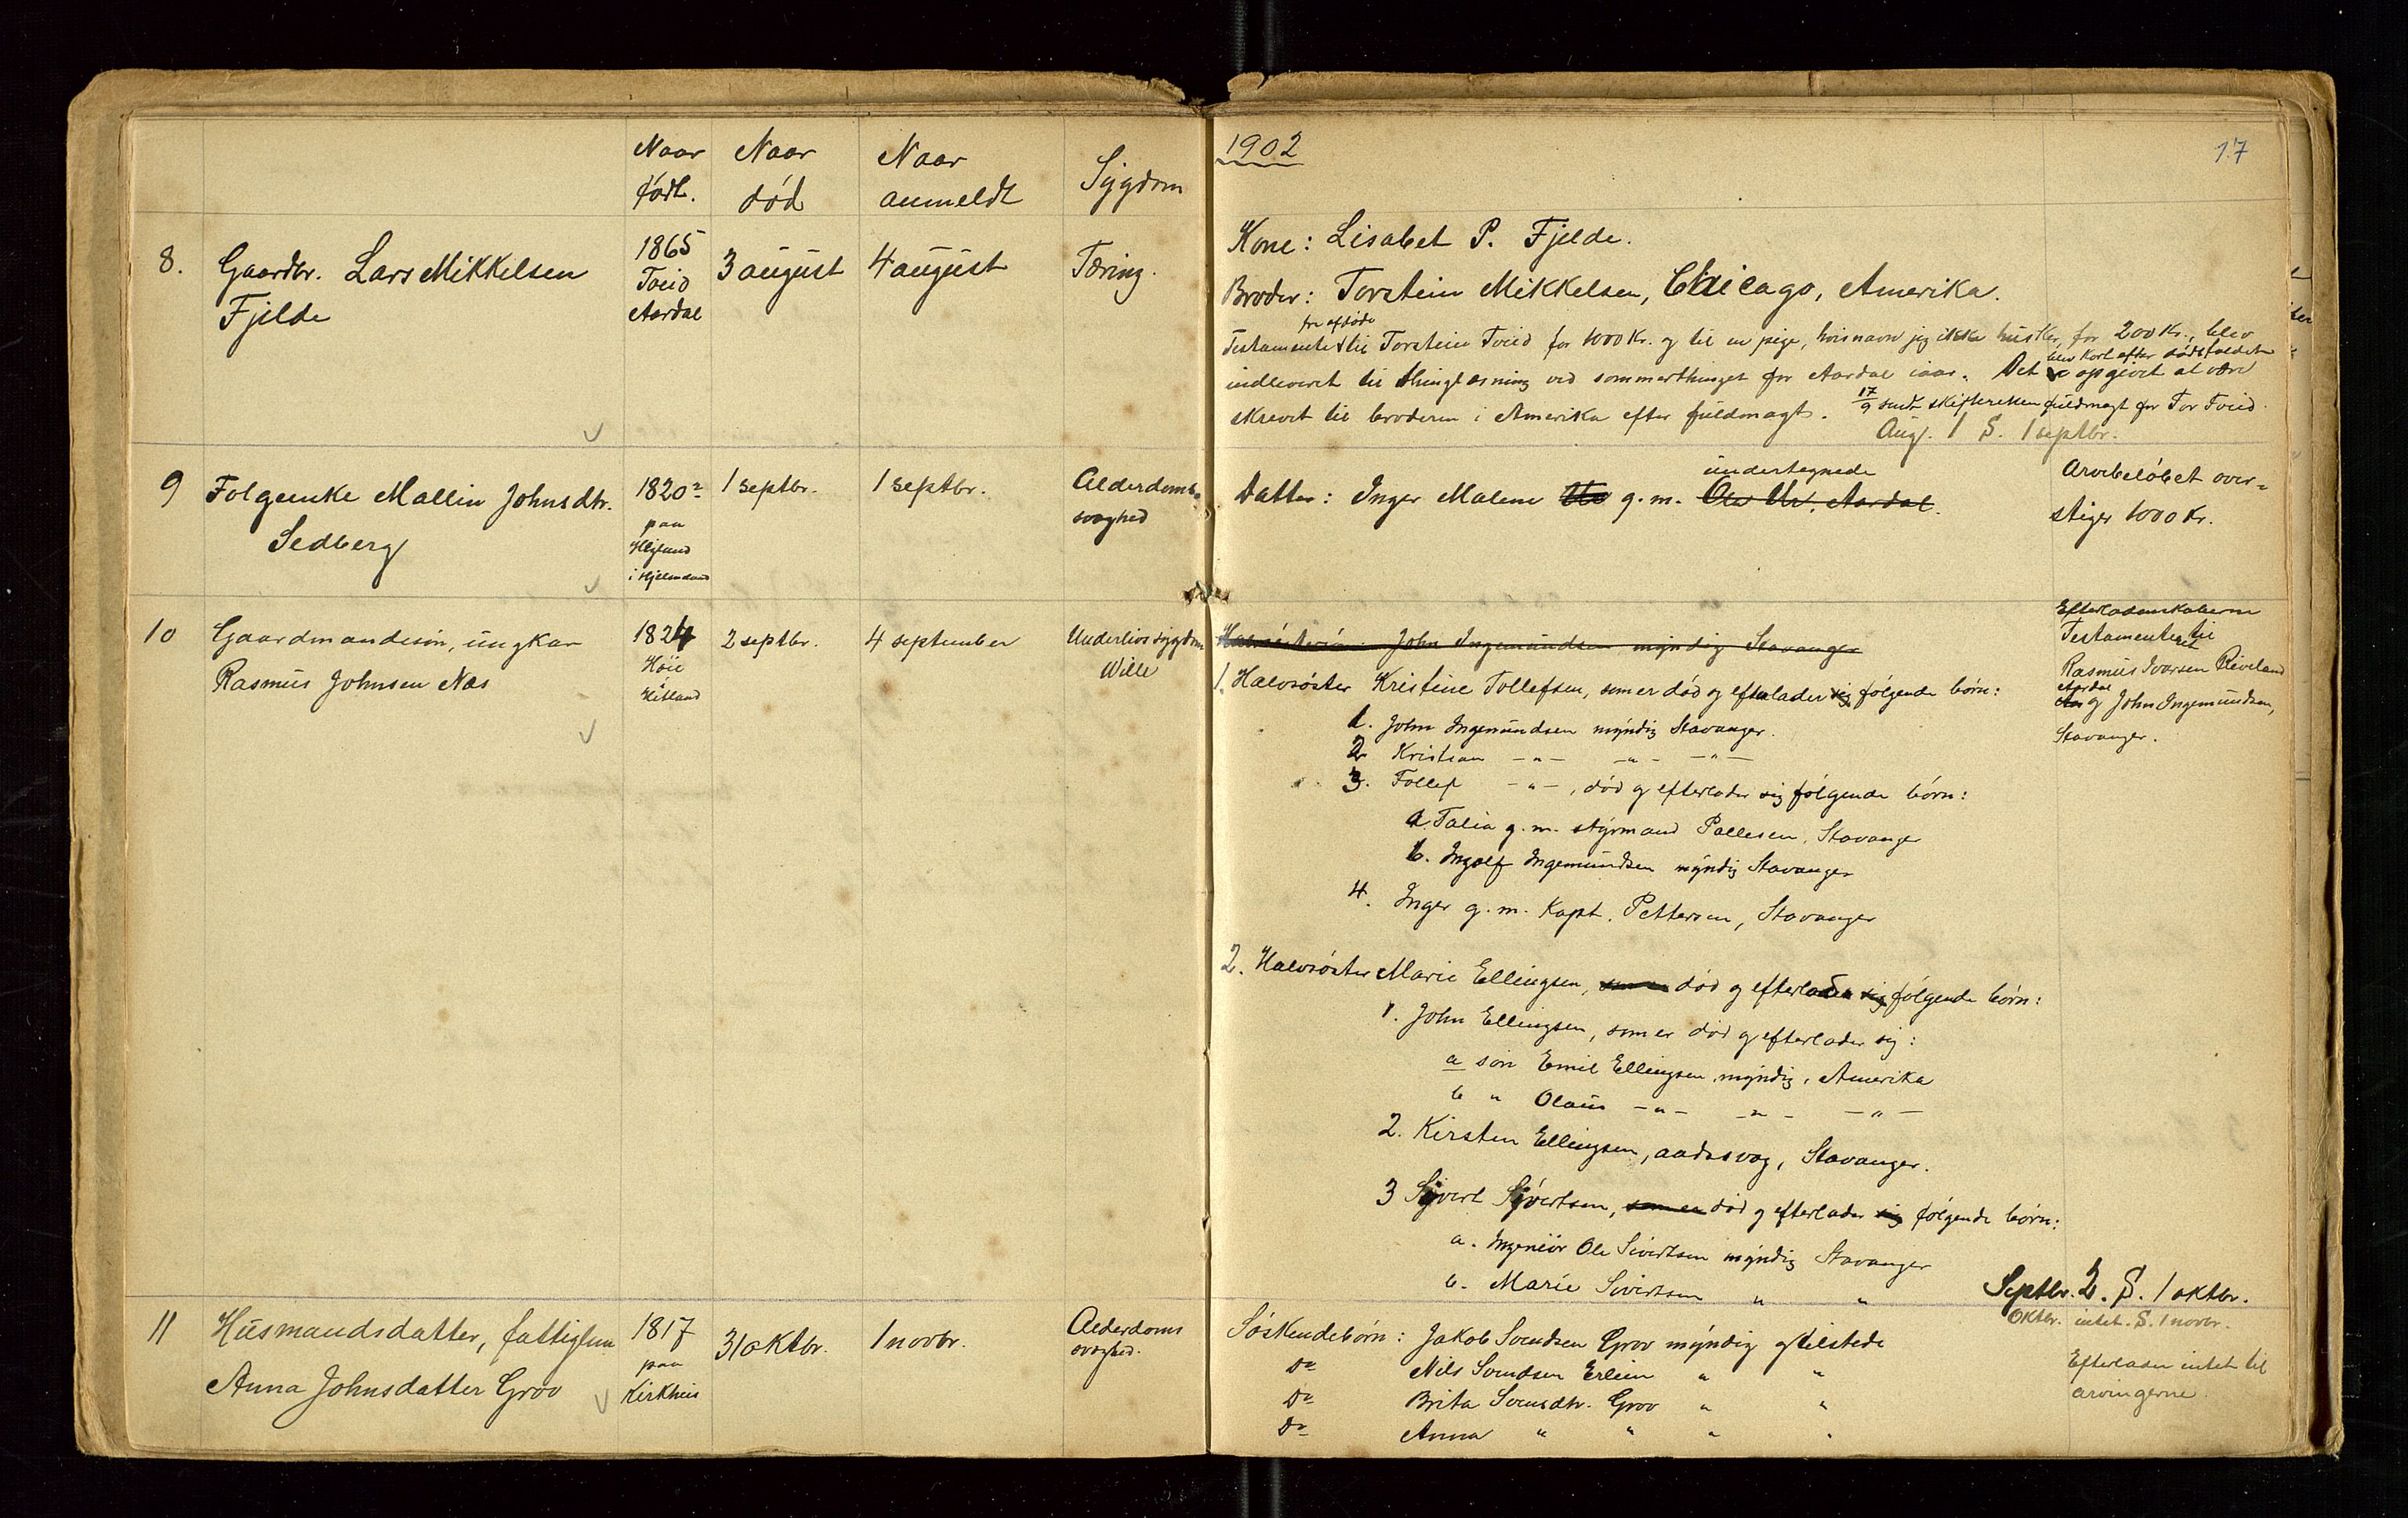 Naar født. Naar død Naar anmeldt Sygdom
8. Gaardbr. Lars Mikkelsen
Fjelde
1865
Tveid
Aardal
3 august
4 august
Tæring.
9 Folgeenke Mallin Johnsdtr.
Sedberg
1820
paa
i Hjelmeland
1 septbr.
1 septbr.
Alderdoms
svaghed
10 Gaardmandssøn, ungkar
Rasmus Johnsen Næs
1824
Høie
Hetland
2 septbr.
4 september
Underlivssygdom
Wille
11 Husmandsdatter, fattiglem
Anna Johnsdatter Grov
1817
paa
Kirkhus
31 oktbr.
1 novbr.
Alderdoms
svaghed.
1902
17
Kone: Lisabet P. Fjelde.
Broder: Torstein Mikkelsen, Chicago, Amerika.
fra afdøde
Testamente til Torstein Tveid for 1000 Kr. og til en pige, hvis navn jeg ikke husker, for 200 Kr., blev
indleveret til thinglæsning ved sommerthinget for Aardal iaar. Det blev kort efter dødsfaldet opgivet at være
skrevet til broderen i Amerika efter fuldmagt. 17/9 sendt skifteretten fuldmagt for Tor Tveid.
Aug. 1 S. 1 septbr.
undertegnede
Datter: Inger Malene g. m. Aardal.
Arvebeløbet over-
stiger 1000 Kr.
John Ingemundsen myndig Stavanger
1. Halvsøster Kristine Tollefsen, som er død og efterlader sig følgende børn:
1. John Ingemundsen myndig Stavanger.
2 Kristian -"- -"- -"-
3. Tollef -"-, død og efterlader sig følgende børn:
a. Talia g. m. styrmand Pallesen, Stavanger
b. Ingolf Ingemundsen myndig Stavanger
4. Inger g. m. Kapt. Pettersen, Stavanger
Efterladenskaberne
Testamenteret til
Rasmus Ivarsen Riveland
Aardal
og John Ingemundsen,
Stavanger.
2. Halvsøster Marie Ellingsen, død og efterlader sig følgende børn:
1. John Ellingsen, som er død og efterlader sig:
a søn Emil Ellingsen, myndig, Amerika
b " Olaus -"- -"- -"-
2. Kirsten Ellingsen, aadssvag, Stavanger.
3 Sivert Sivertsen, som er død og efterlader sig følgende børn:
a. Ingeniør Ole Sivertsen myndig Stavanger
b. Marie Sivertsen " "
Septbr. 2. S. 1 oktbr.
Oktbr. intet. S. 1 novbr.
Søskendebørn: Jakob Svendsen Grov myndig og tilstede
Do Nils Svendsen Erlien " "
Do Brita Svensdtr. Grov " "
Do Anna " " " "
Efterlader intet til
arvingerne.